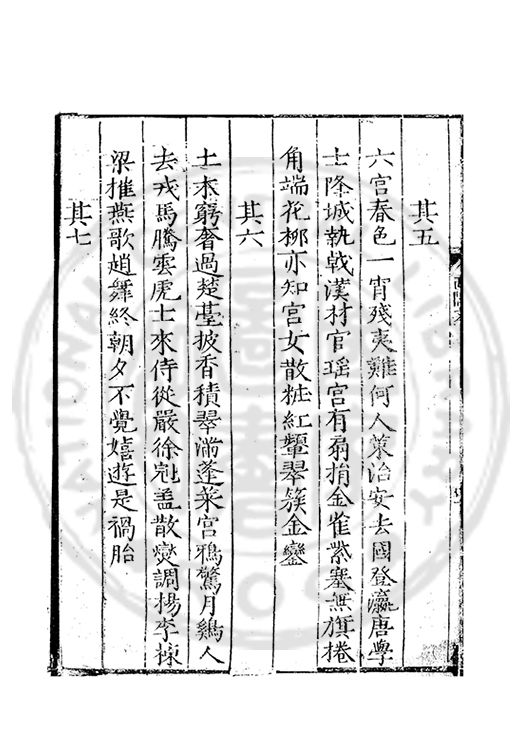 其五
六宫春色一宵殘夷難何人策治安去國登瀛唐學
士隆城執戟漢材官瑶宫有扇捐金雀紫塞無旗捲
角端花柳亦知宫女散粧紅顰翠簇金鑾
其六
土木窮奢過楚臺披香積翠滿蓬萊宫鴉驚月鷄人
去戎馬騰雲虎士來侍從嚴徐冠盖散爕調楊李棟
梁摧燕歌趙舞終朝夕不覺嬉遊是禍胎
其七